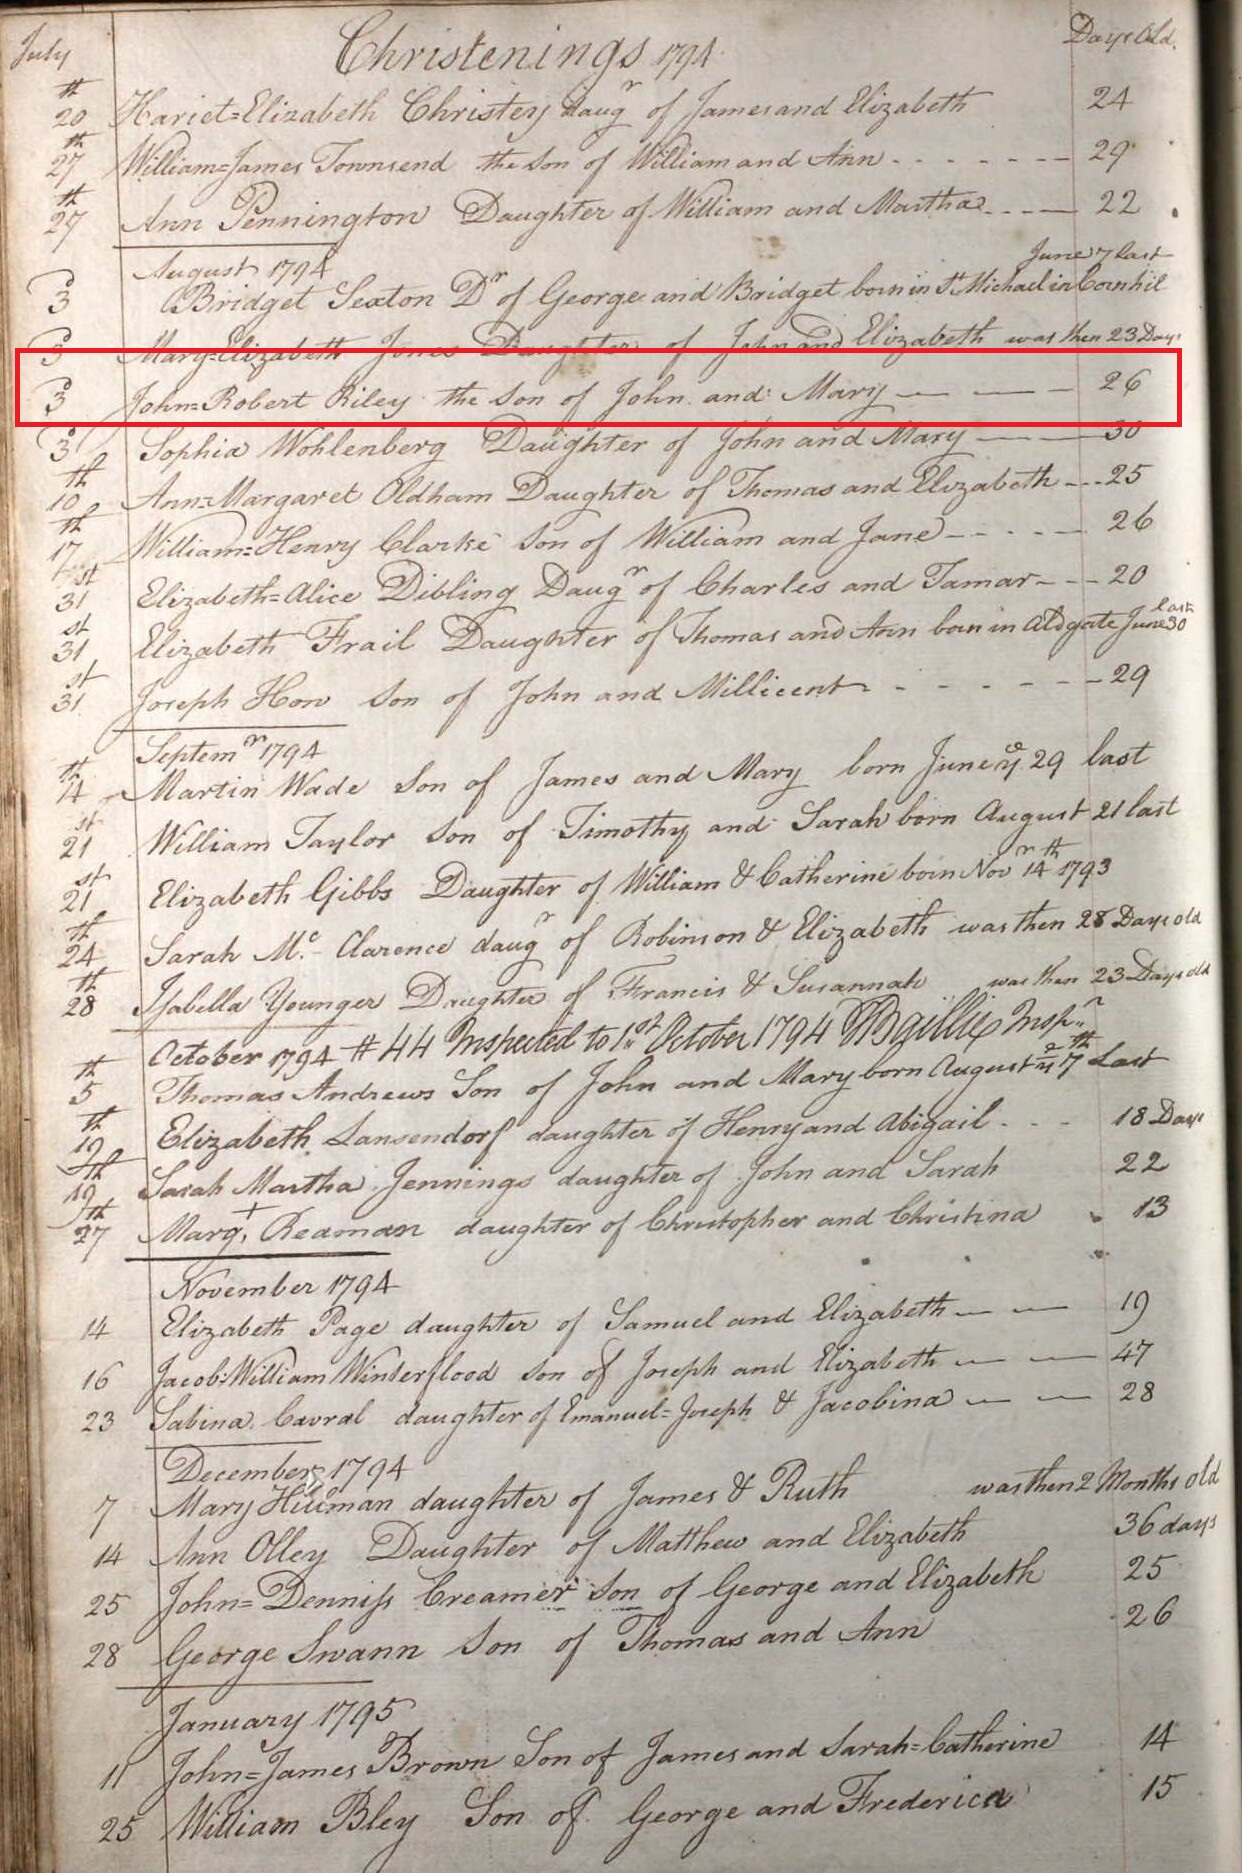 July Christenings 1794 Days Old.
20th Hariet=Elizabeth Christey daugr of James and Elizabeth 24
27th William=James Townsend the son of William and Ann - - - - - - - 29
27th Ann Pennington Daughter of William and Martha - - - - 22
August 1794 June 7 last
3d Bridget Sexton Dr of George and Bridget born in St Michael in Cornhil
3d Mary=Elizabeth Jones Daughter of John and Elizabeth was then 23 Days
3d John=Robert Riley the son of John and Mary — — — 26
3d Sophia Wohlenberg Daughter of John and Mary — — 30
10th Ann=Margaret Oldham Daughter of Thomas and Elizabeth - - - 25
17th William=Henry Clarke son of William and Jane - - - - - 26
31st Elizabeth=Alice Dibling Daugr of Charles and Tamar - - - 20
last
31st Elizabeth Frail Daughter of Thomas and Ann born in Aldgate June 30
31st Joseph How son of John and Millicent - - - - - - - 29
Septemr 1794
14th Martin Wade son of James and Mary born June ye 29 last
21st William Taylor son of Timothy and Sarah born August 21 last
21st Elizabeth Gibbs Daughter of William & Catherine born Novr 14th 1793
24th Sarah Mc. Clarence daugr of Robinson & Elizabeth was then 28 Days old
28th Isabella Younger Daughter of Francis & Susannah was then 23 Days old
October 1794 # 44 Inspected to 1st October 1794 Baillie Inspr
5th Thomas Andrews Son of John and Mary born August ye 7th Last
19th Elizabeth Lansendorf daughter of Henry and Abigail - - - 18 Days
19th Sarah Martha Jennings daughter of John and Sarah 22
27th Margt. Redman daughter of Christopher and Christina 13
November 1794
14 Elizabeth Page daughter of Samuel and Elizabeth — — 19
16 Jacob=William Winterflood son of Joseph and Elizabeth — — 47
23 Sabina Cavral daughter of Emanuel=Joseph & Jacobina — — 28
December 1794
7 Mary Hillman daughter of James & Ruth was then 2 Months old
14 Ann Olley Daughter of Matthew and Elizabeth 36 days
25 John=Denniss Creamer son of George and Elizabeth 25
28 George Swann Son of Thomas and Ann 26
January 1795
11 John=James Brown Son of James and Sarah=Catherine 14
25 William Bley Son of George and Frederica 15